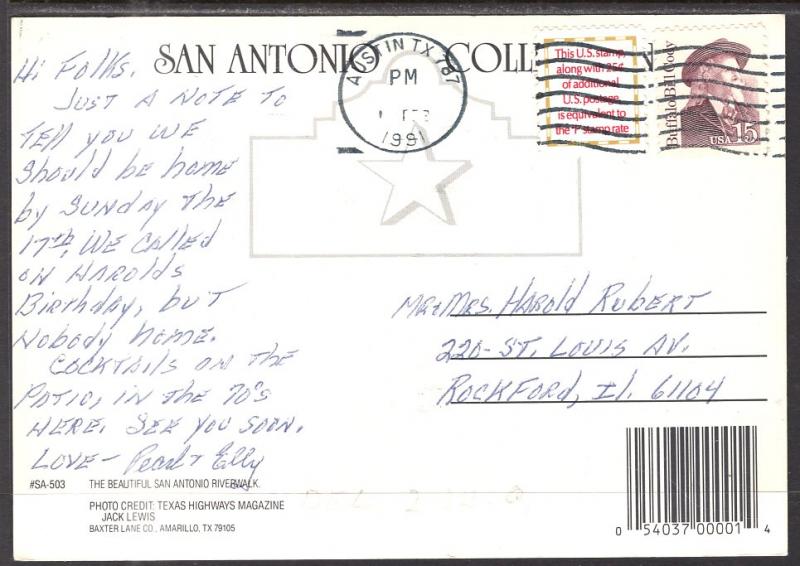 SAN ANTONIO COLL N
AUSTIN TX 787
PM
1991
This U.S. stamp,
along with 25¢
of additional
U.S. postage,
is equivalent to
the 'F' stamp rate
Buffalo Bill Cody
USA 15
Hi Folks,
JUST A NOTE TO
Tell you WE
Should be home
by SUNDAY THE
17th, WE CALLED
ON HAROLDS
Birthday, but
Nobody home.
COCKTAILS ON THE
PATIO, IN THE 70'S
HERE. SEE YOU SOON.
LOVE - Pearl + Elly
Mr & Mrs. Harold Rubert
220 - ST. LOUIS AV.
ROCKFORD, Il. 61104
#SA-503 THE BEAUTIFUL SAN ANTONIO RIVERWALK.
PHOTO CREDIT: TEXAS HIGHWAYS MAGAZINE
JACK LEWIS
BAXTER LANE CO., AMARILLO, TX 79105
0 54037 00001 4